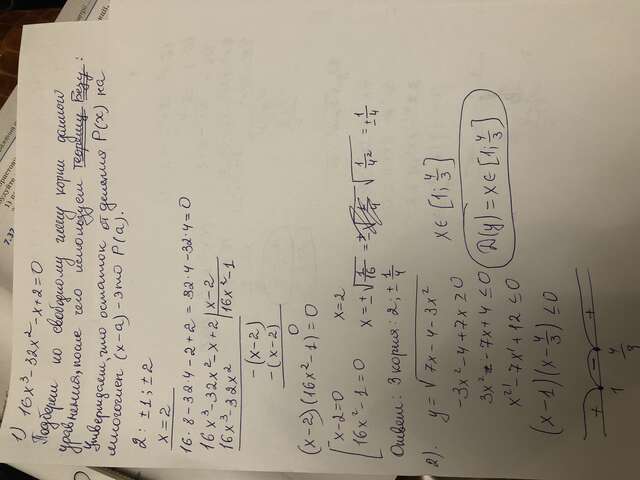 1) 16x³-32x²-x+2=0
Подберем по свободному члену корни данного
уравнения, после чего используем теорему Безу:
Утверждаем, что остаток от деления P(x) на
многочлен (x-a) - это P(a).
2: ±1; ±2
x=2
16·8-32·4-2+2=32·4-32·4=0
16x³-32x²-x+2 | x-2
16x³-32x² | 16x²-1
-(x-2)
-(x-2)
0
(x-2)(16x²-1)=0
[x-2=0 x=2
16x²-1=0 x=±√(1/16)=± √(1/4²)=±1/4
Ответ: 3 корня: 2; ±1/4
2). y=√(7x-4-3x²)
-3x²-4+7x≥0
3x²-7x+4≤0
x²'-7x'+12≤0
(x-1)(x-4/3)≤0
+ - +
1 4/3
x∈[1;4/3]
D(y)=x∈[1;4/3]
7.37